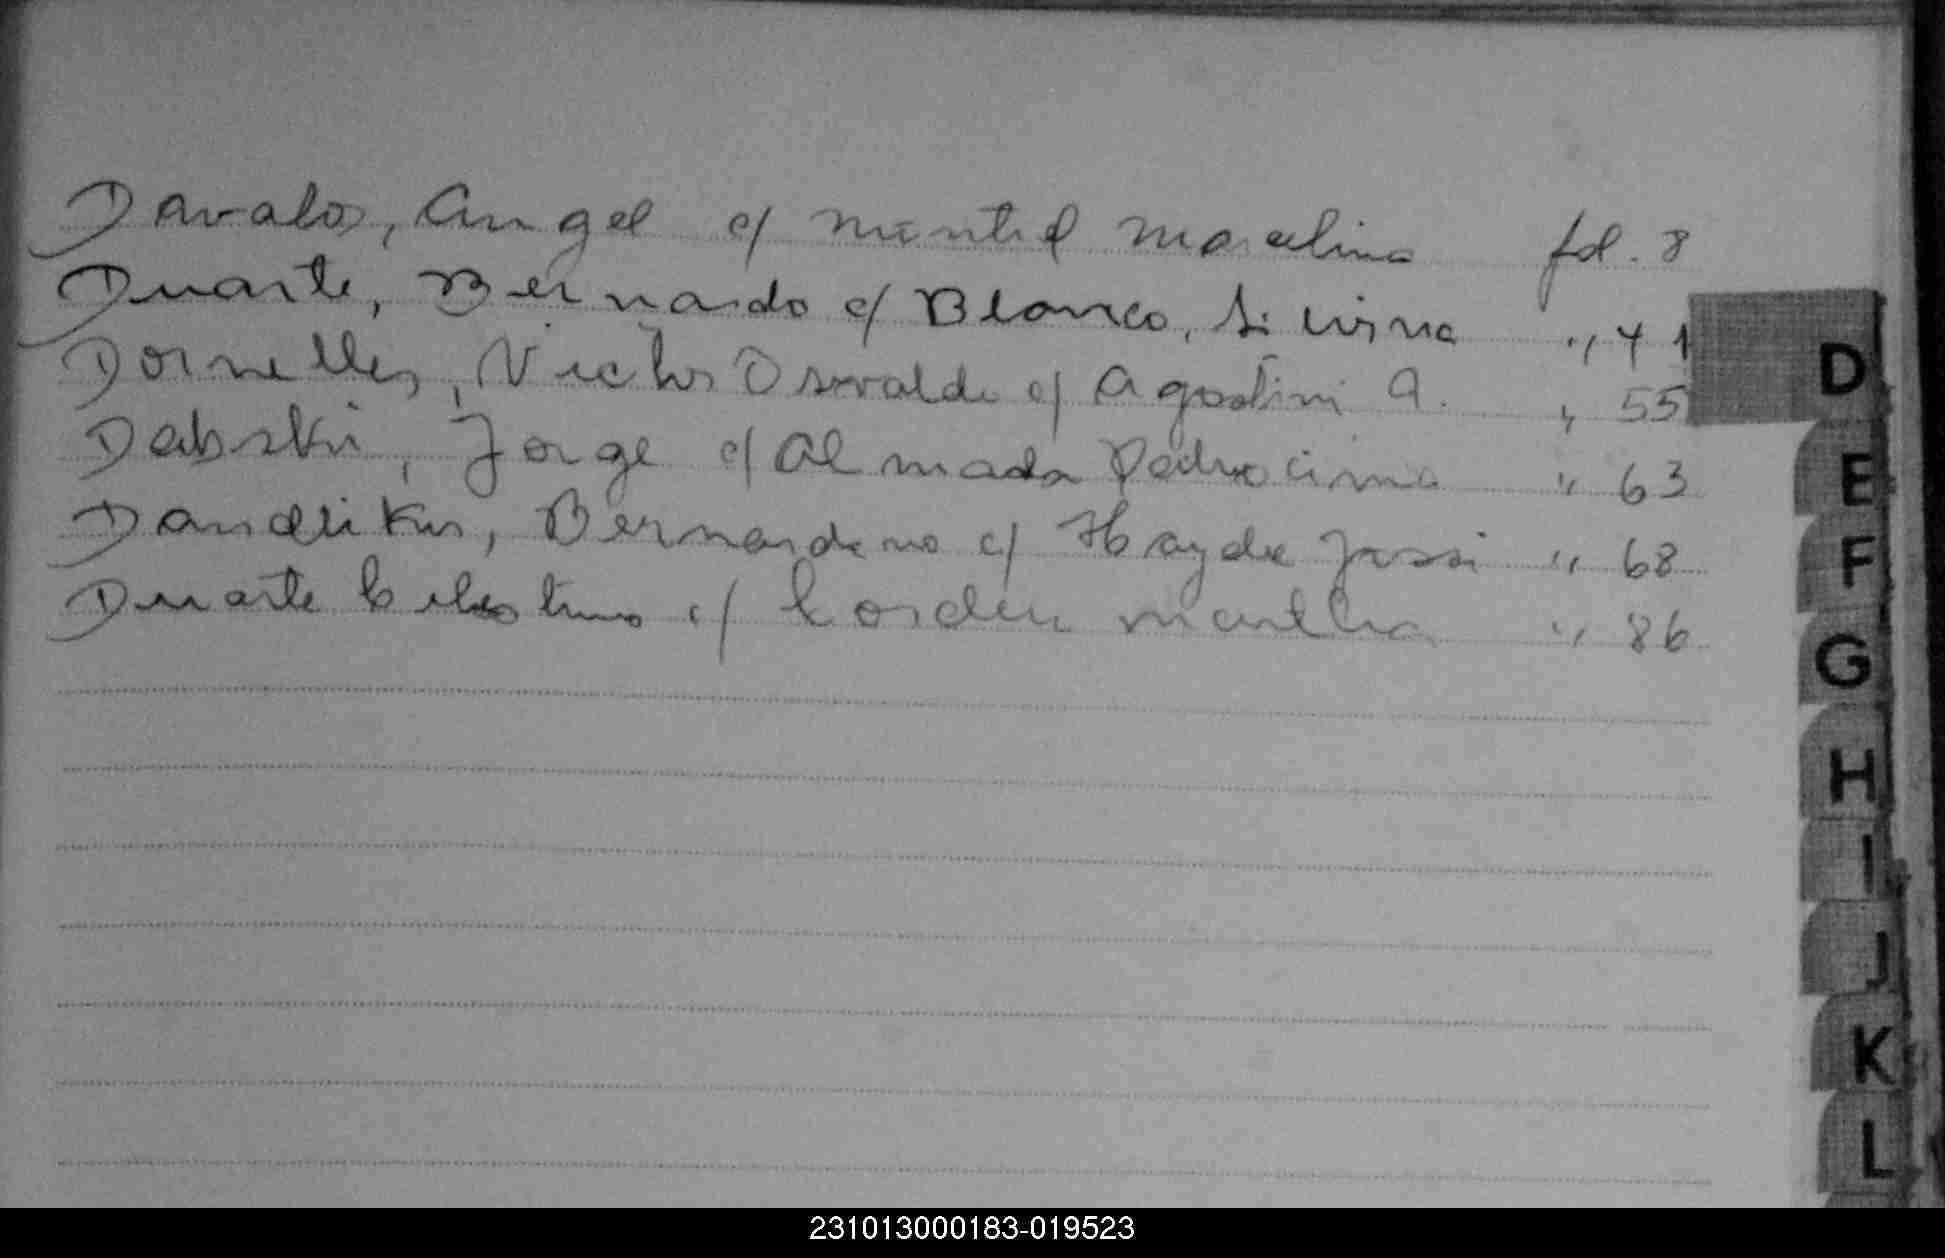 Davalos, Angel c/ Mentel Marcelina fol. 8
Duarte, Bernardo c/ Blanco, Silvina " 41
Dornelles, Victor Osvaldo c/ Agostini A. " 55
Debski, Jorge c/ Almada Patrocinia " 63
Bernardino c/ Haydee " 68
Duarte Celestino c/ Martha " 86
D
E
F
G
H
I
J
K
L
231013000183-019523